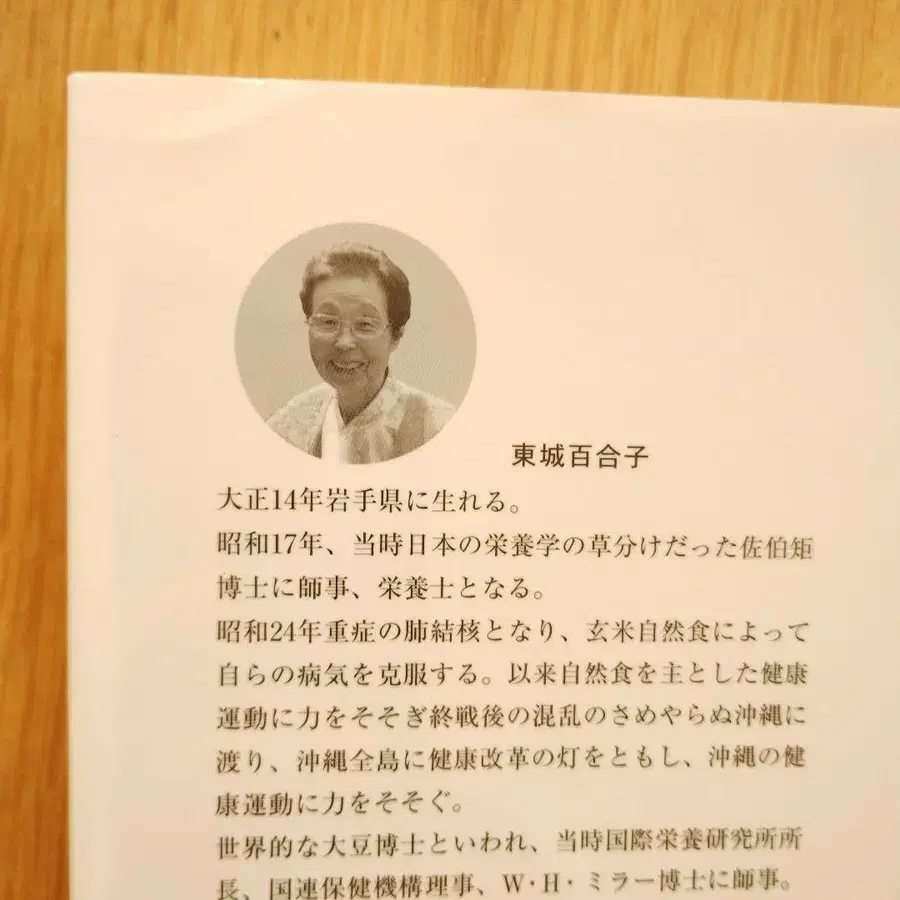 東城百合子
大正14年岩手県に生れる。
昭和17年、当時日本の栄養学の草分けだった佐伯矩
博士に師事、栄養士となる。
昭和24年重症の肺結核となり、玄米自然食によって
自らの病気を克服する。以来自然食を主とした健康
運動に力をそそぎ終戦後の混乱のさめやらぬ沖縄に
渡り、沖縄全島に健康改革の灯をともし、沖縄の健
康運動に力をそそぐ。
世界的な大豆博士といわれ、当時国際栄養研究所所
長、国連保健機構理事、W・H・ミラー博士に師事。